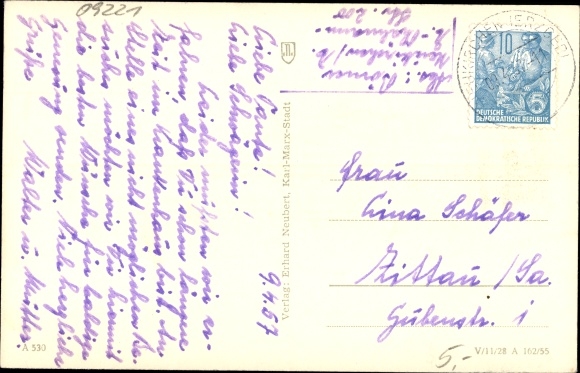 09221
Abs.: Börner
Neukirchen/E.
Str. 200
9.4.57
Liebe Tante!
Liebe Schwägerin!
Leider mußten wir er-
fahren, daß Du schon längere
Zeit im Krankenhaus bist. An
Stelle eines nicht möglichen Be-
suchs möchten wir Dir hiermit
die besten Wünsche für baldige
Genesung senden. Viele herzliche
Grüße
Walter u. Mutter.
A 530
Verlag: Erhard Neubert, Karl-Marx-Stadt
10
DEUTSCHE
DEMOKRATISCHE REPUBLIK
Frau
Lina Schäfer
Zittau/Sa.
Gubenstr. 1
5,-
V/11/28 A 162/55